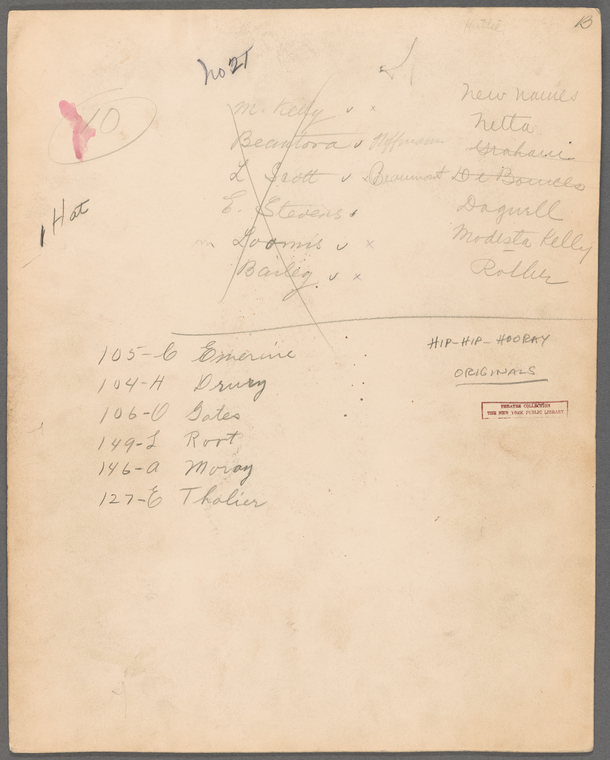 B
No 21
10
New Names
M. Kelly v x
Netta
Beautora v Hoffmann
Grahame
L Scott v Beaumont
E. Stevens v
Dagnell
1 Hat
m Loomis v x
Modesta Kelly
Bailey v x
Rother
105-C Emerine
HIP-HIP-HOORAY
104-H Drury
ORIGINALS
106-O Gates
THEATRE COLLECTION
THE NEW YORK PUBLIC LIBRARY
149-L Root
146-A Moray
127-E Thalier